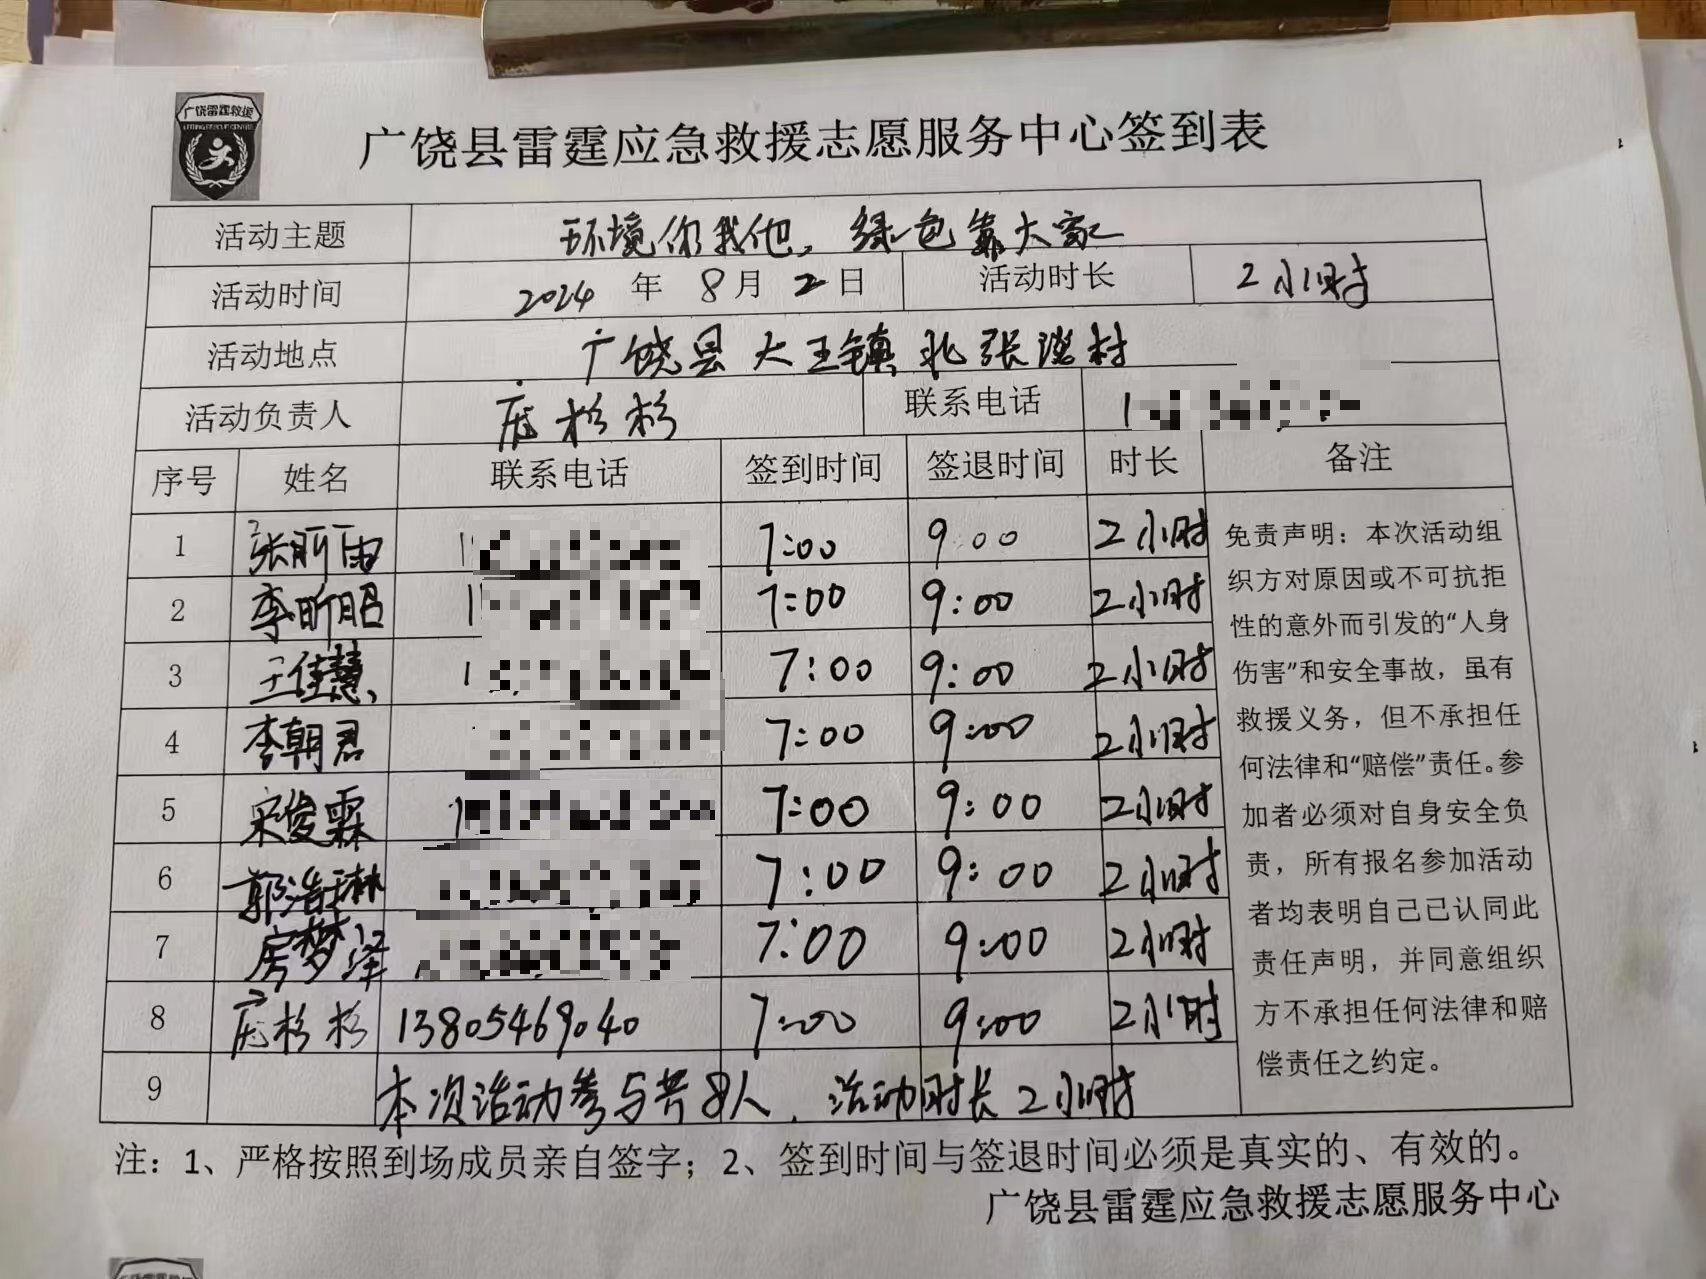 广饶雷霆救援
广饶县雷霆应急救援志愿服务中心签到表
活动主题 环境你我他，绿色靠大家
活动时间 2024 年 8 月 2 日 活动时长 2小时
活动地点 广饶县大王镇北张淡村
活动负责人 庞杉杉 联系电话 1
序号 姓名 联系电话 签到时间 签退时间 时长 备注
1 张昕雨 1 7:00 9:00 2小时
2 李昕昭 1 7:00 9:00 2小时
3 王佳慧 1 7:00 9:00 2小时
4 李朝君 7:00 9:00 2小时
5 宋俊霖 1 7:00 9:00 2小时
6 郭浩琳 7:00 9:00 2小时
7 房梦泽 7:00 9:00 2小时
8 庞杉杉 13805469040 7:00 9:00 2小时
9 本次活动参与共8人，活动时长2小时
免责声明：本次活动组
织方对原因或不可抗拒
性的意外而引发的“人身
伤害”和安全事故，虽有
救援义务，但不承担任
何法律和“赔偿”责任。参
加者必须对自身安全负
责，所有报名参加活动
者均表明自己已认同此
责任声明，并同意组织
方不承担任何法律和赔
偿责任之约定。
注：1、严格按照到场成员亲自签字；2、签到时间与签退时间必须是真实的、有效的。
广饶县雷霆应急救援志愿服务中心